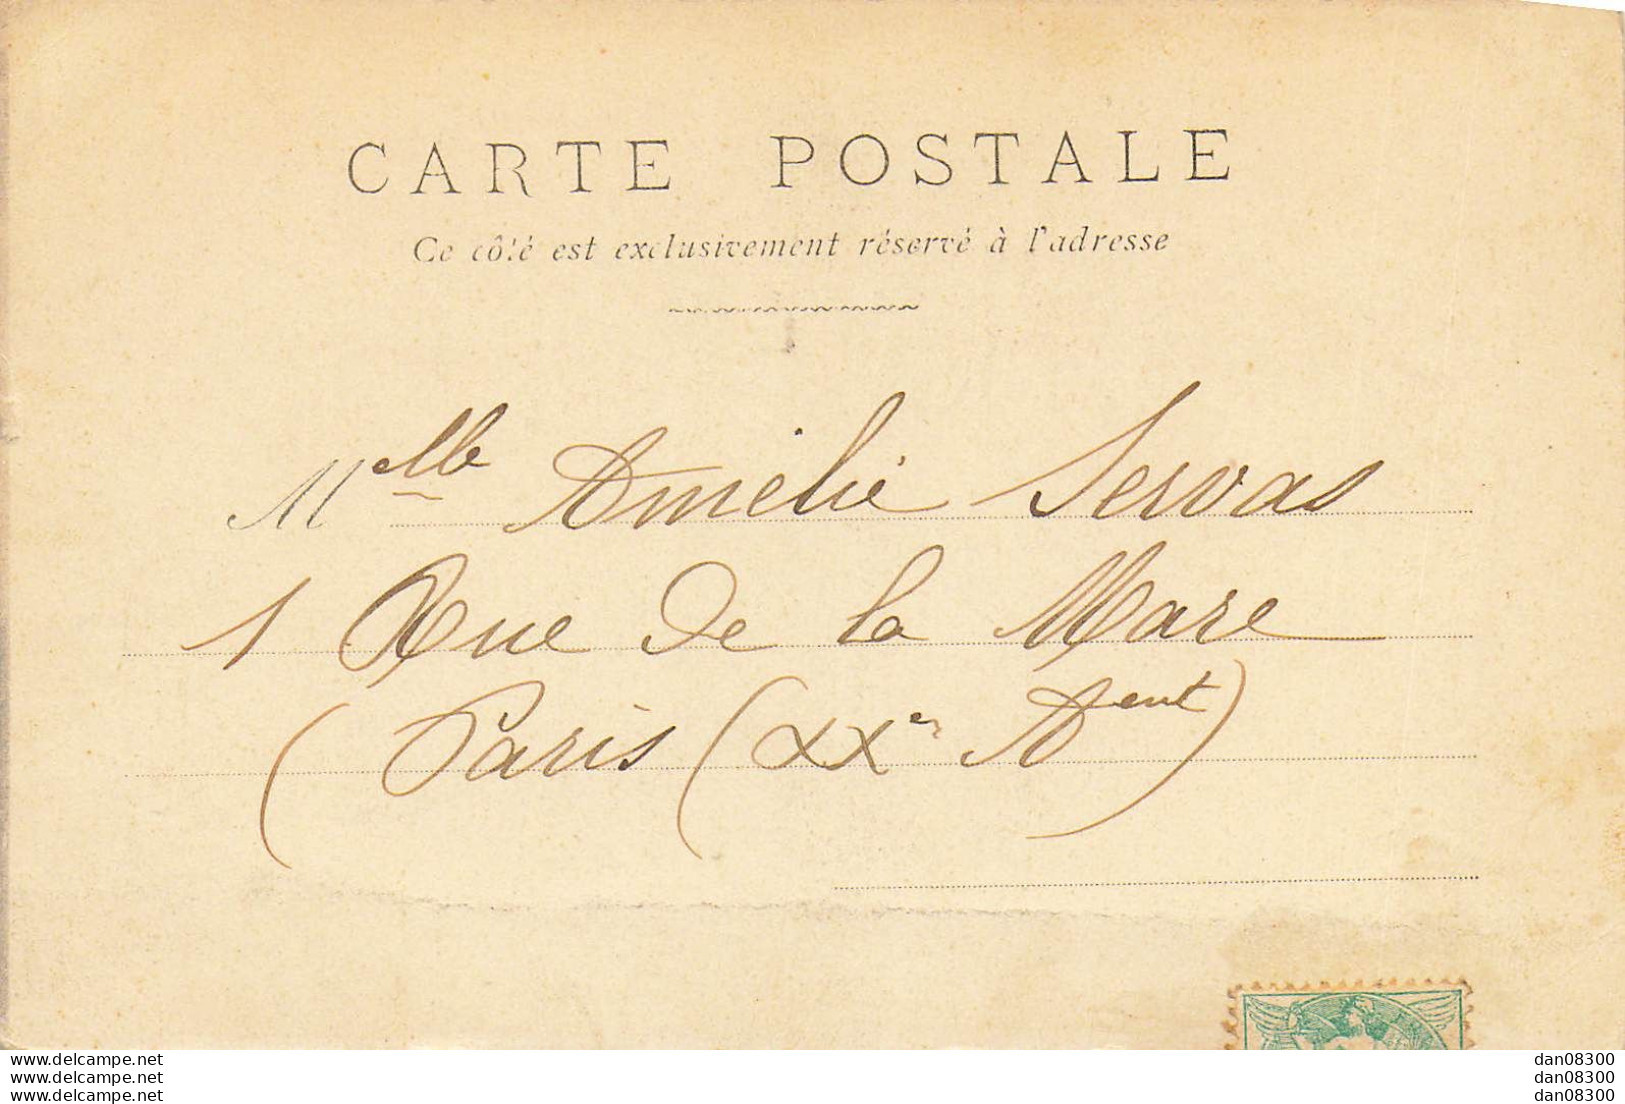 CARTE POSTALE
Ce côté est exclusivement réservé à l'adresse
Melle Amélie Servas
1 Rue de la Mare
(Paris (XXe Aent)
www.delcampe.net
www.delcampe.net
www.delcampe.net
dan08300
dan08300
dan08300